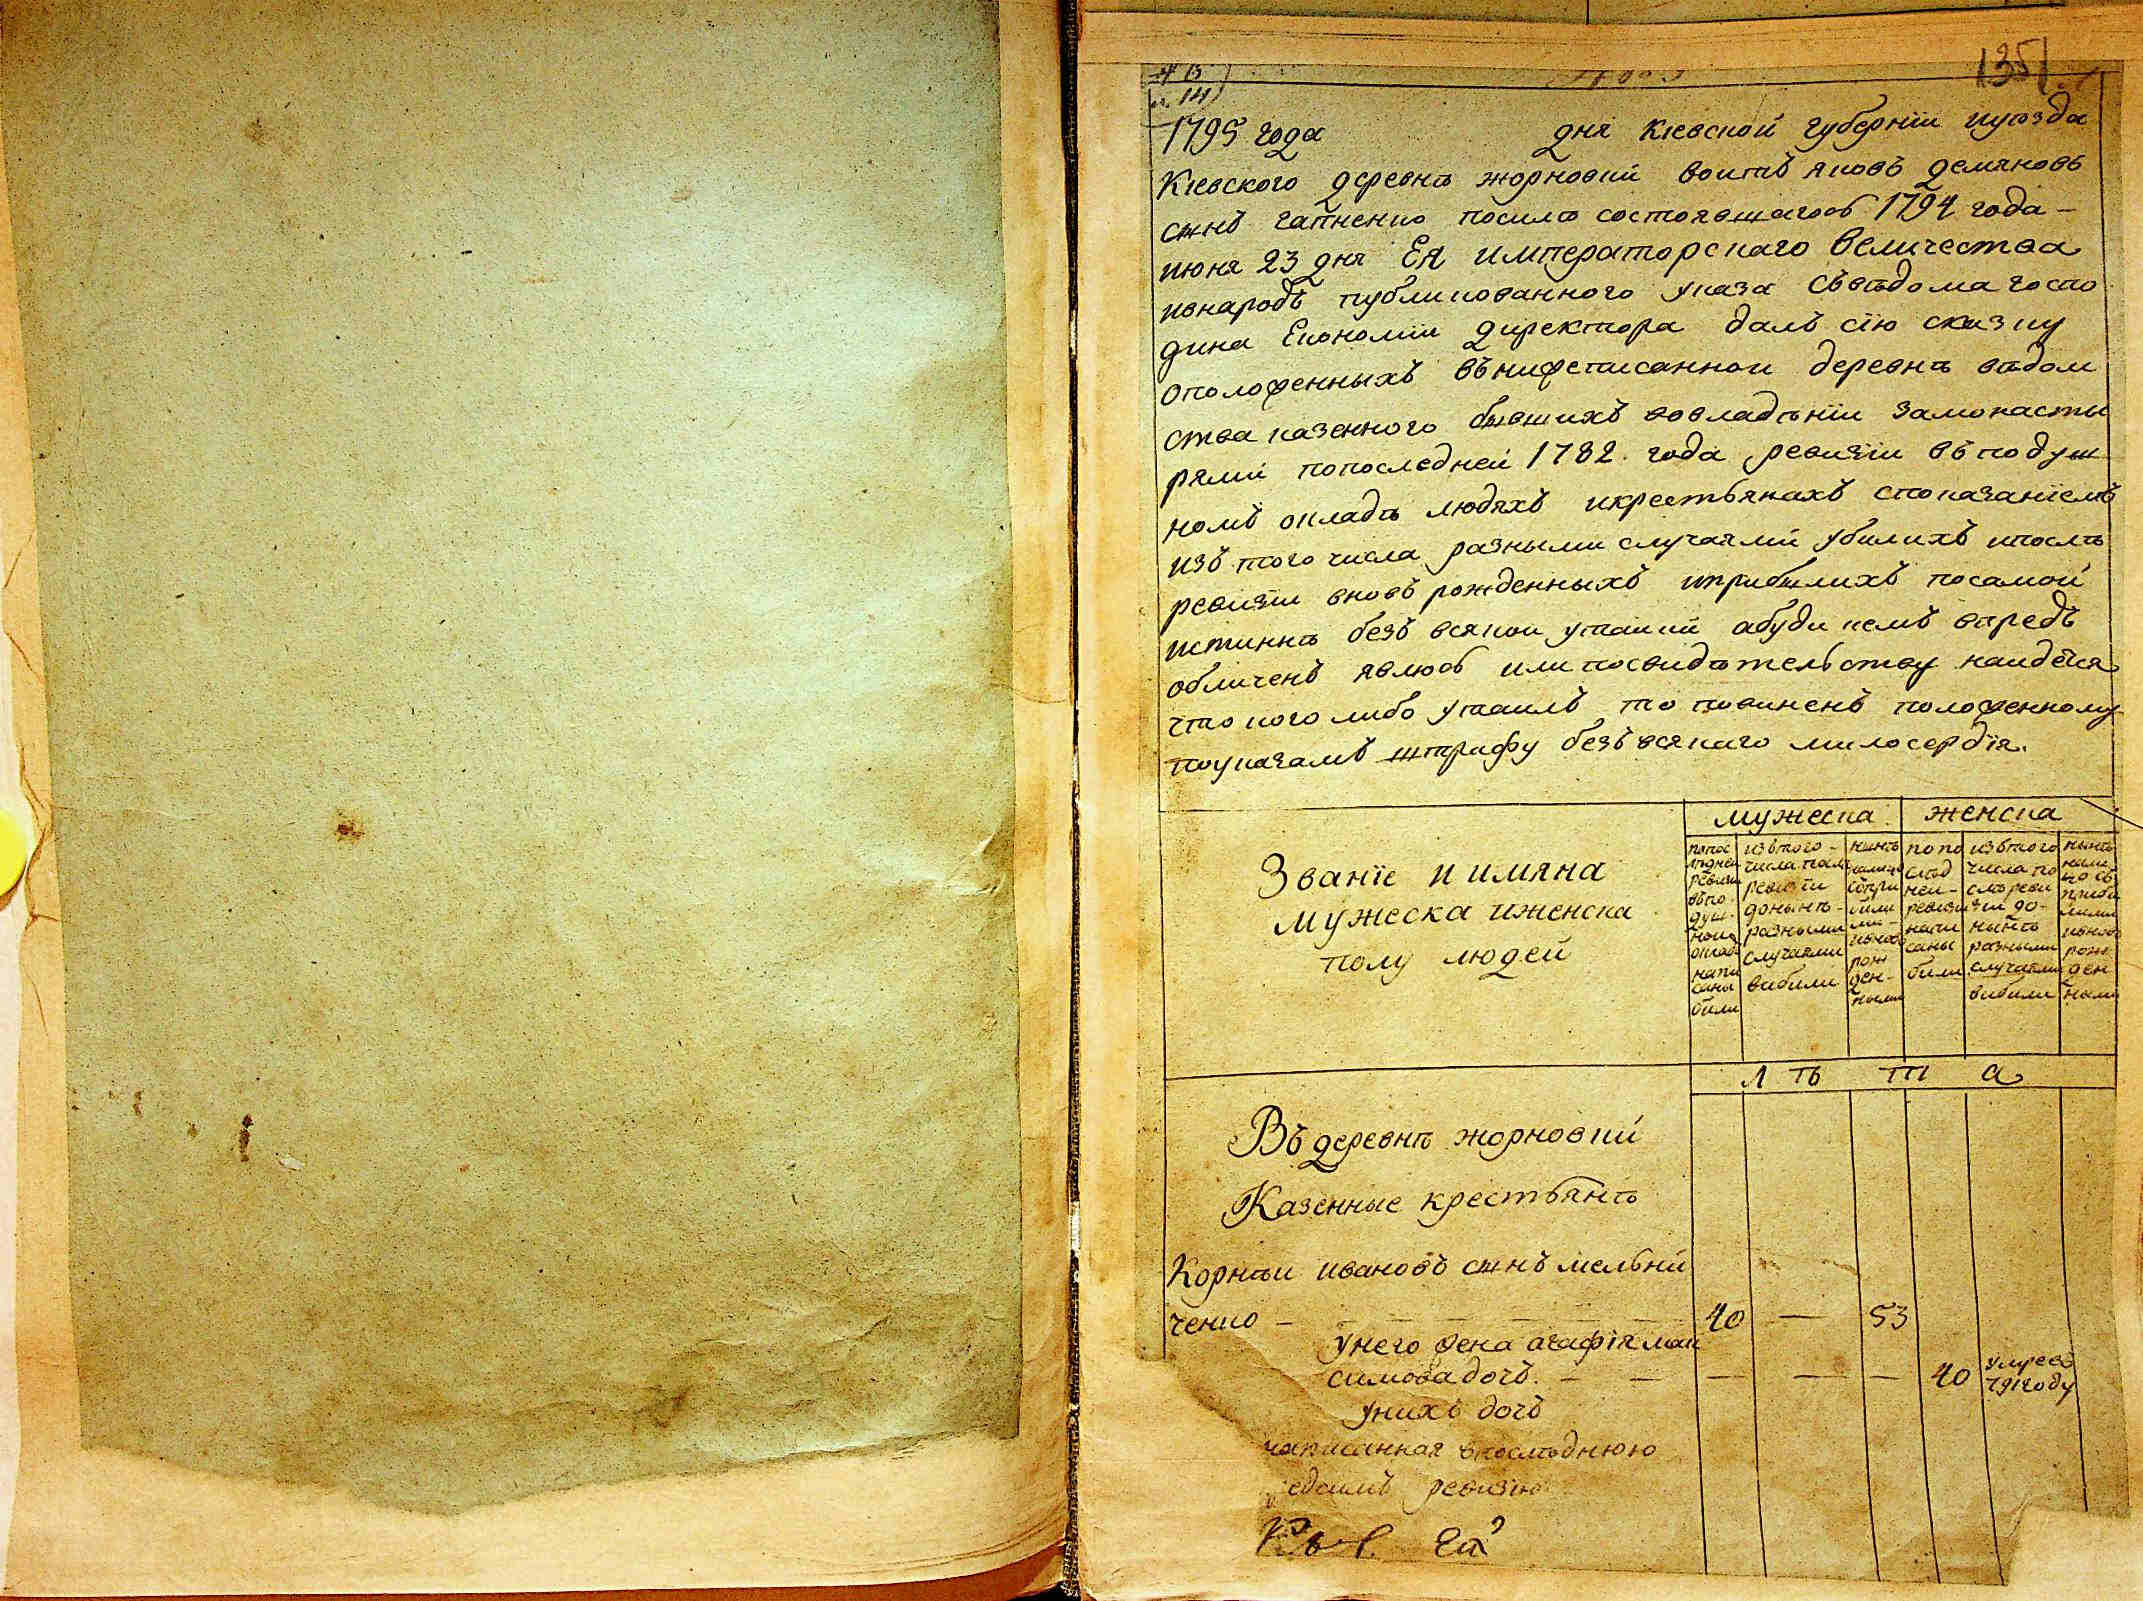 1351
1795 года дня Киевской губернїи иуѣзда
Киевского деревнѣ жорновки воитъ яковъ демяновъ
сынъ гапненко посилѣ состоявшагось 1794 года –
июня 23 дня Ея императорскаго величества
ивнародъ публикованного указа съвѣдома госпо
дина Економїи директора далъ сїю сказку
оположенныхъ въ нижеписанной деревнѣ вѣдом
ства казенного бывшихъ вовладѣнїи замонасты
рями попоследней 1782 года ревизїи въ подуш
номъ окладѣ людяхъ икрестьянахъ споказанїемъ
изъ того числа разными случаями убилихъ ипослѣ
ревизїи вновь рожденныхъ иприбылихъ посамой
истиннѣ безъ всякои утайки абуди кемъ впредь
обличенъ явлюсь или посвидѣтельству наидется
что кого либо утаилъ то повиненъ положенному
поуказамъ штрафу безъ всякаго милосердїя.
мужеска женска
Званїе и имяна
мужеска иженска
полу людей
попос
лѣдней
ревизи
въпо
душ
ном
оклад
напи
саны
били
изътого
числа посл
ревизи
донынѣ
разными
случаями
вибили
нынѣ
рож
ден-
ными
по по
слѣд
ней-
ревизи
напи
саны
били
изътого
числа по
слѣ реви
зїи до-
нынѣ
разными
случаями
вибили
нынѣ
рож
ден
ными
л ѣ т а
Въ деревнѣ жорновки
Казенные крестьянѣ
Корнѣи ивановъ сынъ мельни
ченко – 40 — 53
унего жена агафїя мак
симова дочь. – — — — — 40 умре въ
791 году
унихъ дочь
написанная впослѣднюю
ревизїю